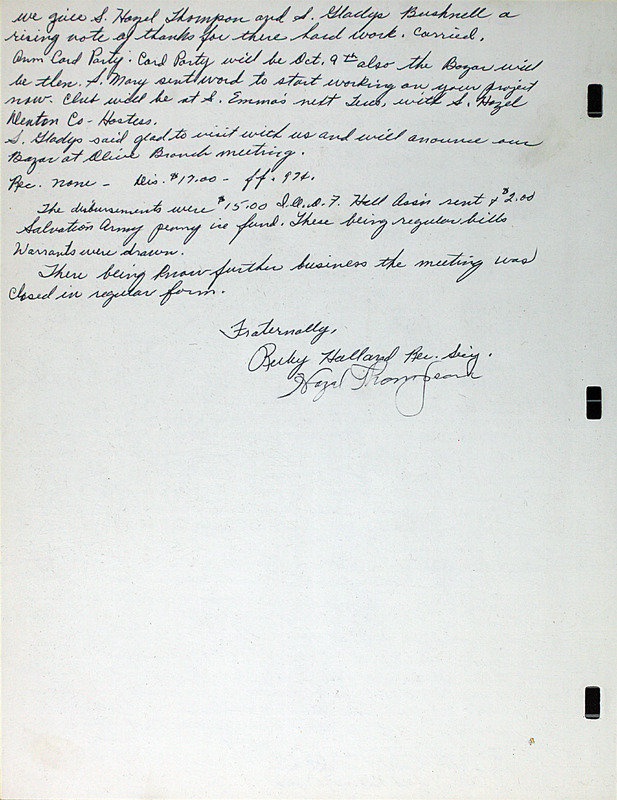 we give S. Hazel Thompson and S. Gladys Bushnell a
rising vote of thanks for there hard work. Carried.
Ann Card Party. Card Party will be Oct. 9th also the Bazar will
be then. S. Mary sent word to start working on your project
now. Club will be at S. Emma's next Tues, with S. Hazel
Denton Co-Hostess.
S. Gladys said glad to visit with us and will anounce our
Bazar at Olive Branch meeting.
Rec. none - Dis. $17.00 - ff. 97¢.
The disbursements were $15.00 I.O.O.F. Hall Ass'n rent & $2.00
Salvation Army penny ice fund. These being regular bills
Warrants were drawn.
There being know further business the meeting was
Closed in regular form.
Fraternally,
Ruby Hallard Rec. Secy.
Hazel Thompson